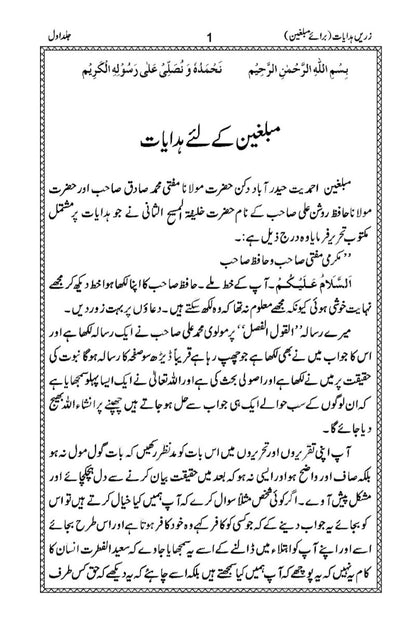 زریں ہدایات (برائے مبلغین)
1
جلد اول
بِسْمِ اللّٰہِ الرَّحْمٰنِ الرَّحِیْمِ نَحْمَدُہٗ وَ نُصَلِّیْ عَلٰی رَسُوْلِہِ الْکَرِیْمِ
مبلغین کے لئے ہدایات
مبلغین احمدیت حیدر آباد دکن حضرت مولانا مفتی محمد صادق صاحب اور حضرت
مولانا حافظ روشن علی صاحب کے نام حضرت خلیفۃ المسیح الثانی نے جو ہدایات پر مشتمل
مکتوب تحریر فرمایا وہ درج ذیل ہے:۔
’’مکرمی مفتی صاحب و حافظ صاحب
اَلسَّلَامُ عَلَیْکُمْ۔ آپ کے خط ملے۔ حافظ صاحب کا اپنا لکھا ہوا خط دیکھ کر مجھے
نہایت خوشی ہوئی کیونکہ مجھے معلوم نہ تھا کہ وہ لکھ سکتے ہیں۔ دعاؤں پر بہت زور دیں۔
میرے رسالہ ’’القول الفصل‘‘ پر مولوی محمد علی صاحب نے ایک رسالہ لکھا ہے اور
اس کا جواب میں نے بھی لکھا ہے جو چھپ رہا ہے قریباً ڈیڑھ سو صفحہ کا رسالہ ہو گا نبوت کی
حقیقت پر میں نے لکھا ہے اور اصولی بحث کی ہے اور اللہ تعالیٰ نے ایک ایسا پہلو سمجھایا ہے
کہ ان لوگوں کے سب حوالے ایک ہی جواب سے حل ہو جاتے ہیں چھپنے پر انشاء اللہ بھیج
دیا جائے گا۔
آپ اپنی تقریروں اور تحریروں میں اس بات کو مدنظر رکھیں کہ بات گول مول نہ ہو
بلکہ صاف اور واضح ہو اور ایسی نہ ہو کہ بعد میں حقیقت بیان کرنے سے دل ہچکچائے اور
مشکل پیش آوے۔ اگر کوئی شخص مثلاً سوال کرے کہ آپ ہمیں کیا خیال کرتے ہیں تو اس
کو بجائے یہ جواب دینے کے کہ جو کسی کو کافر کہے وہ خود کافر ہوتا ہے اور اس طرح بجائے
اسے اور اپنے آپ کو ابتلاء میں ڈالنے کے اسے یہ سمجھایا جاوے کہ سعید الفطرت انسان کا
کام یہ نہیں کہ یہ پوچھے کہ آپ ہمیں کیا سمجھتے ہیں بلکہ اسے چاہئے کہ یہ دیکھے کہ حق کس طرف